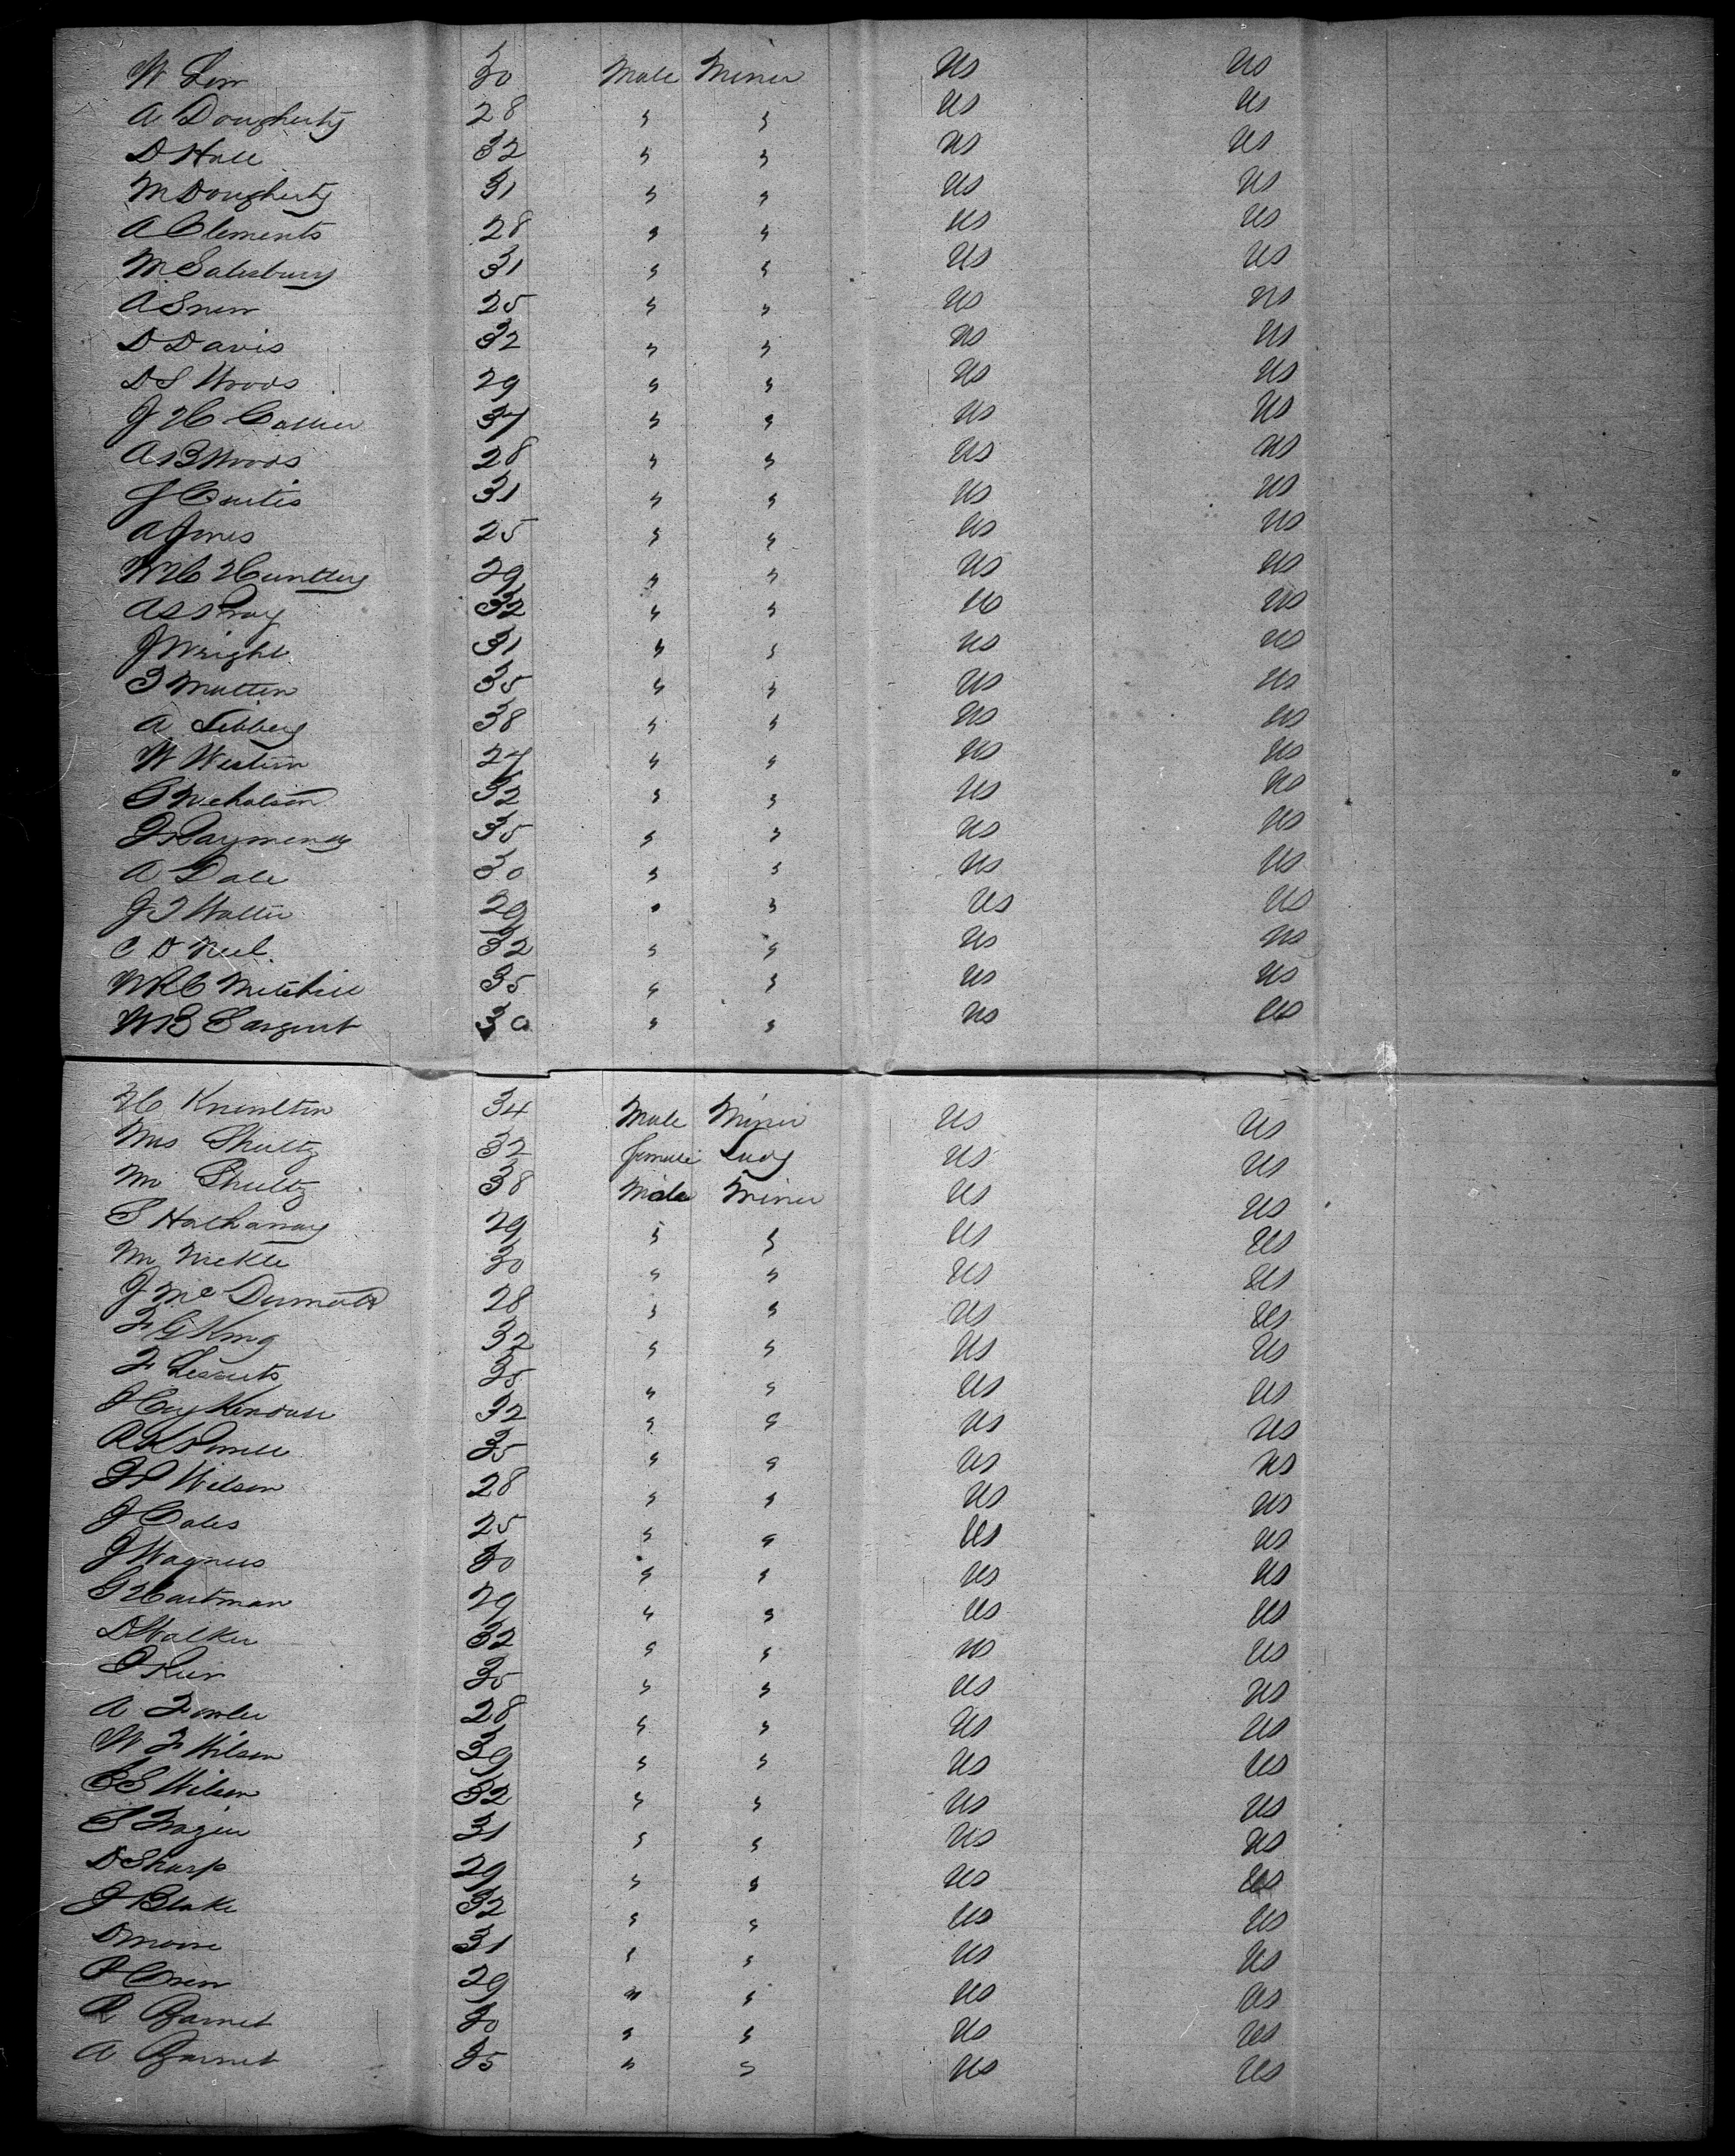 W Low 30 Male Miner US US
A Dougherty 28 " " US US
D Hall 32 " " US US
M Dougherty 31 " " US US
A Clements 28 " " US US
M Salisbury 31 " " US US
A Snow 25 " " US US
D Davis 32 " " US US
D S Woods 29 " " US US
J H 37 " " US US
A B Woods 28 " " US US
J Curtis 31 " " US US
A Jones 25 " " US US
W H Huntley 29 " " US US
A S Pray 32 " " US US
J Wright 31 " " US US
T 35 " " US US
A Libbey 38 " " US US
W Weston 27 " " US US
S Nicholson 32 " " US US
J Raymond 35 " " US US
A Dale 30 " " US US
J T 29 " " US US
C D 32 " " US US
W H C Mitchell 35 " " US US
W B Sargent 30 " " US US
H Knowlton 34 Male Miner US US
Mrs Shultz 32 female Lady US US
Mr Shultz 38 Male Miner US US
S Hathaway 29 " " US US
Mr Nickle 30 " " US US
J Mc Dermott 28 " " US US
F G King 32 " " US US
F 35 " " US US
J 32 " " US US
35 " " US US
J P Wilson 28 " " US US
J Coles 25 " " US US
J Wagner 30 " " US US
G Hartman 29 " " US US
D Walker 32 " " US US
35 " " US US
A Fowler 28 " " US US
W F Wilson 39 " " US US
B S Wilson 32 " " US US
S Frazier 31 " " US US
D Sharp 29 " " US US
J Blake 32 " " US US
D Moore 31 " " US US
29 " " US US
R Barnet 30 " " US US
A Barnet 35 " " US US